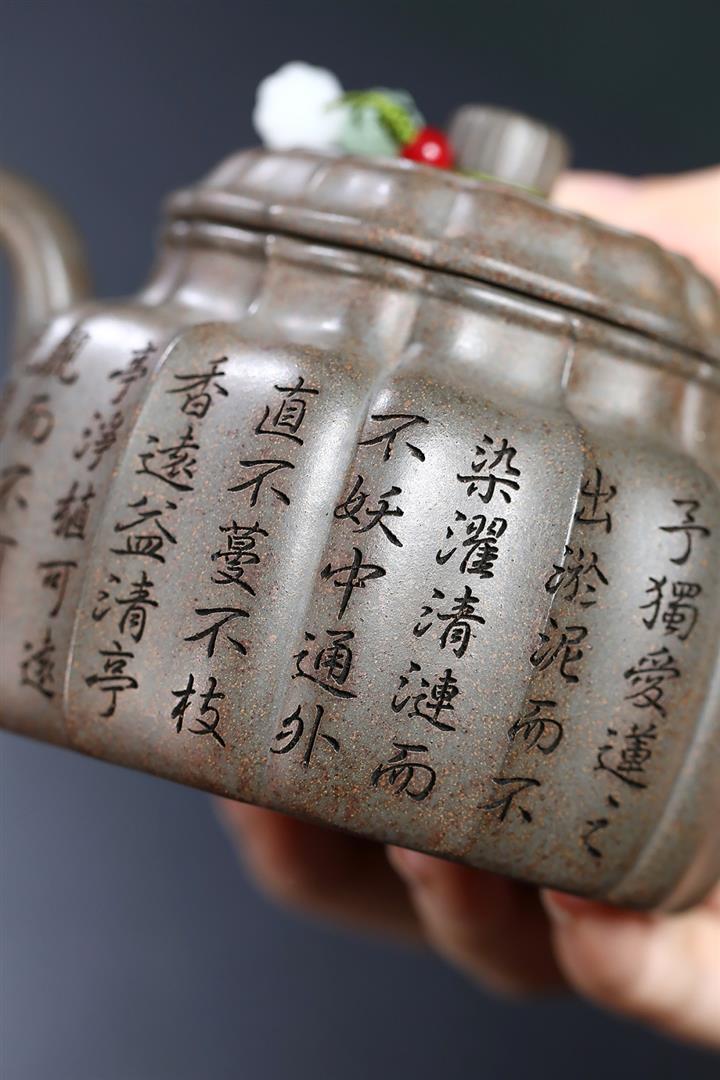 予獨愛蓮之
出淤泥而不
染濯清漣而
不妖中通外
直不蔓不枝
香遠益清亭
亭淨植可遠
觀而不可